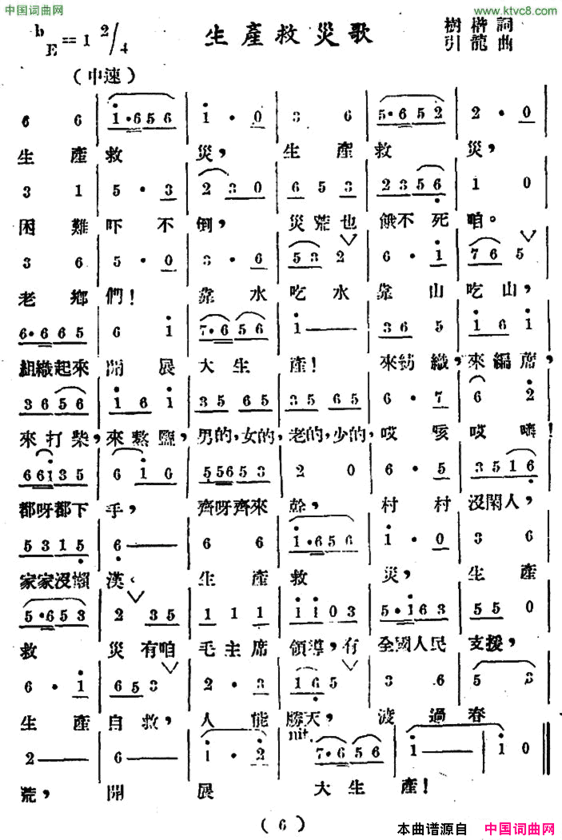 中国词曲网
www.ktvc8.com
生產救災歌
樹榗詞
引龍曲
bE=1 2/4
(中速)
6 6 | i·656 | i·0 | 3 6 | 5·652 | 2·0 |
生產救災,生產救災,
3 1 | 5·3 | 2 3 0 | 6 5 3 | 2356 | 1 0
困難吓不倒,災荒也餓不死咱。
3 6 | 5·0 | 3·6 | 53 2 | 6·i | 76 5
老鄉們!靠水吃水靠山吃山,
6·665 | 6 i | 7·656 | i — | 36 5 | i6 i
組織起來開展大生產!來紡織,來編蓆,
3656 | i6 i | 35 65 | 35 65 | 6·7 | 6 2·
來打柴,來熬鹽,男的,女的,老的,少的,哎咳哎嗨!
66i35 | 6 i0 | 55653 | 2 0 | 6·5 | 3516
都呀都下手,齊呀齊來幹,村村沒閑人,
5315 | 6 — | 6 6 | i·656 | i·0 | 3 6
家家沒懶漢。生產救災,生產
5·653 | 2 35 | 1 1 1 | i i 0 3 | 5·i63 | 55 0
救災有咱毛主席領導,有全國人民支援,
6·i | 65 3 | 2·3 | i6 5 | 3·6 | 5 3
生產自救,人能勝天,渡過春
rit.
2 — | 6 — | i·2 | 7·656 | i — | i 0
荒,開展大生產!
(6)
本曲谱源自 中国词曲网